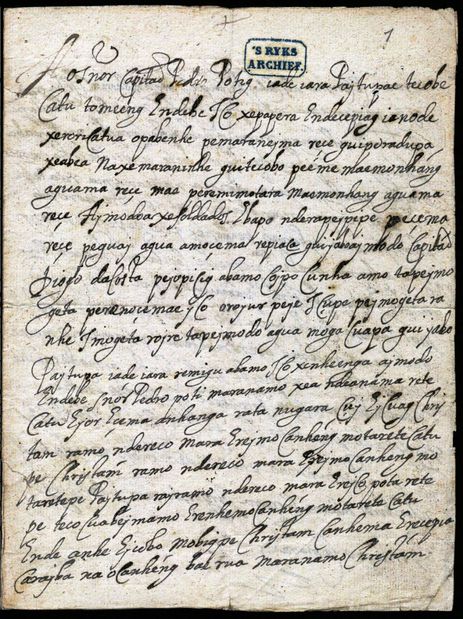 1
'S RYKS
ARCHIEF.
Ao Snor Capitão Pedro Potig iade iara Pajtupae tecobe
Catu tomeeng Endebe Ico xepapera Endecepiag ianode
xeroricatua opabenhe pemaraneyma rece guiporadupa
xeabea Naxemaraninhe guitecobo peeme maemonhang
aguama rece mae peremimotara Maemonhang aguama
rece Ajmodoa xesoldados Ebapo nderapejpipe
rece peguaj agua amocema repiaca guijaboaj modo Capitão
Diogo dacosta pejopicig abamo Cunha amo tapejmo
geta perenoce mae Ico oroyur peje pejmogeta ra
nhe Imogeta rojre tapejmodo agua moga guijabo
Pajtupa iade iara remigu abamo Ico xenheenga ajmodo
Endebe Snor Pedro poti maranamo xea ndeanama rete
Catu Ejor Ecema anhanga rata nugara Cuj Ejcuag Chris
tam ramo ndereco mara Erejmo Canheng motarete Catu
pe Christam ramo ndereco mara Erejmo Canheng mo
taretepe Pajtupa rajramo ndereco mara Ereico pota rete
pe teco Cuabejmamo Erenhemo Canheng motarete Catu
Ende anhe Ejcobo Christam Canhema Erecepia
Carajba na oCanheng bae rua Maranamo Christam